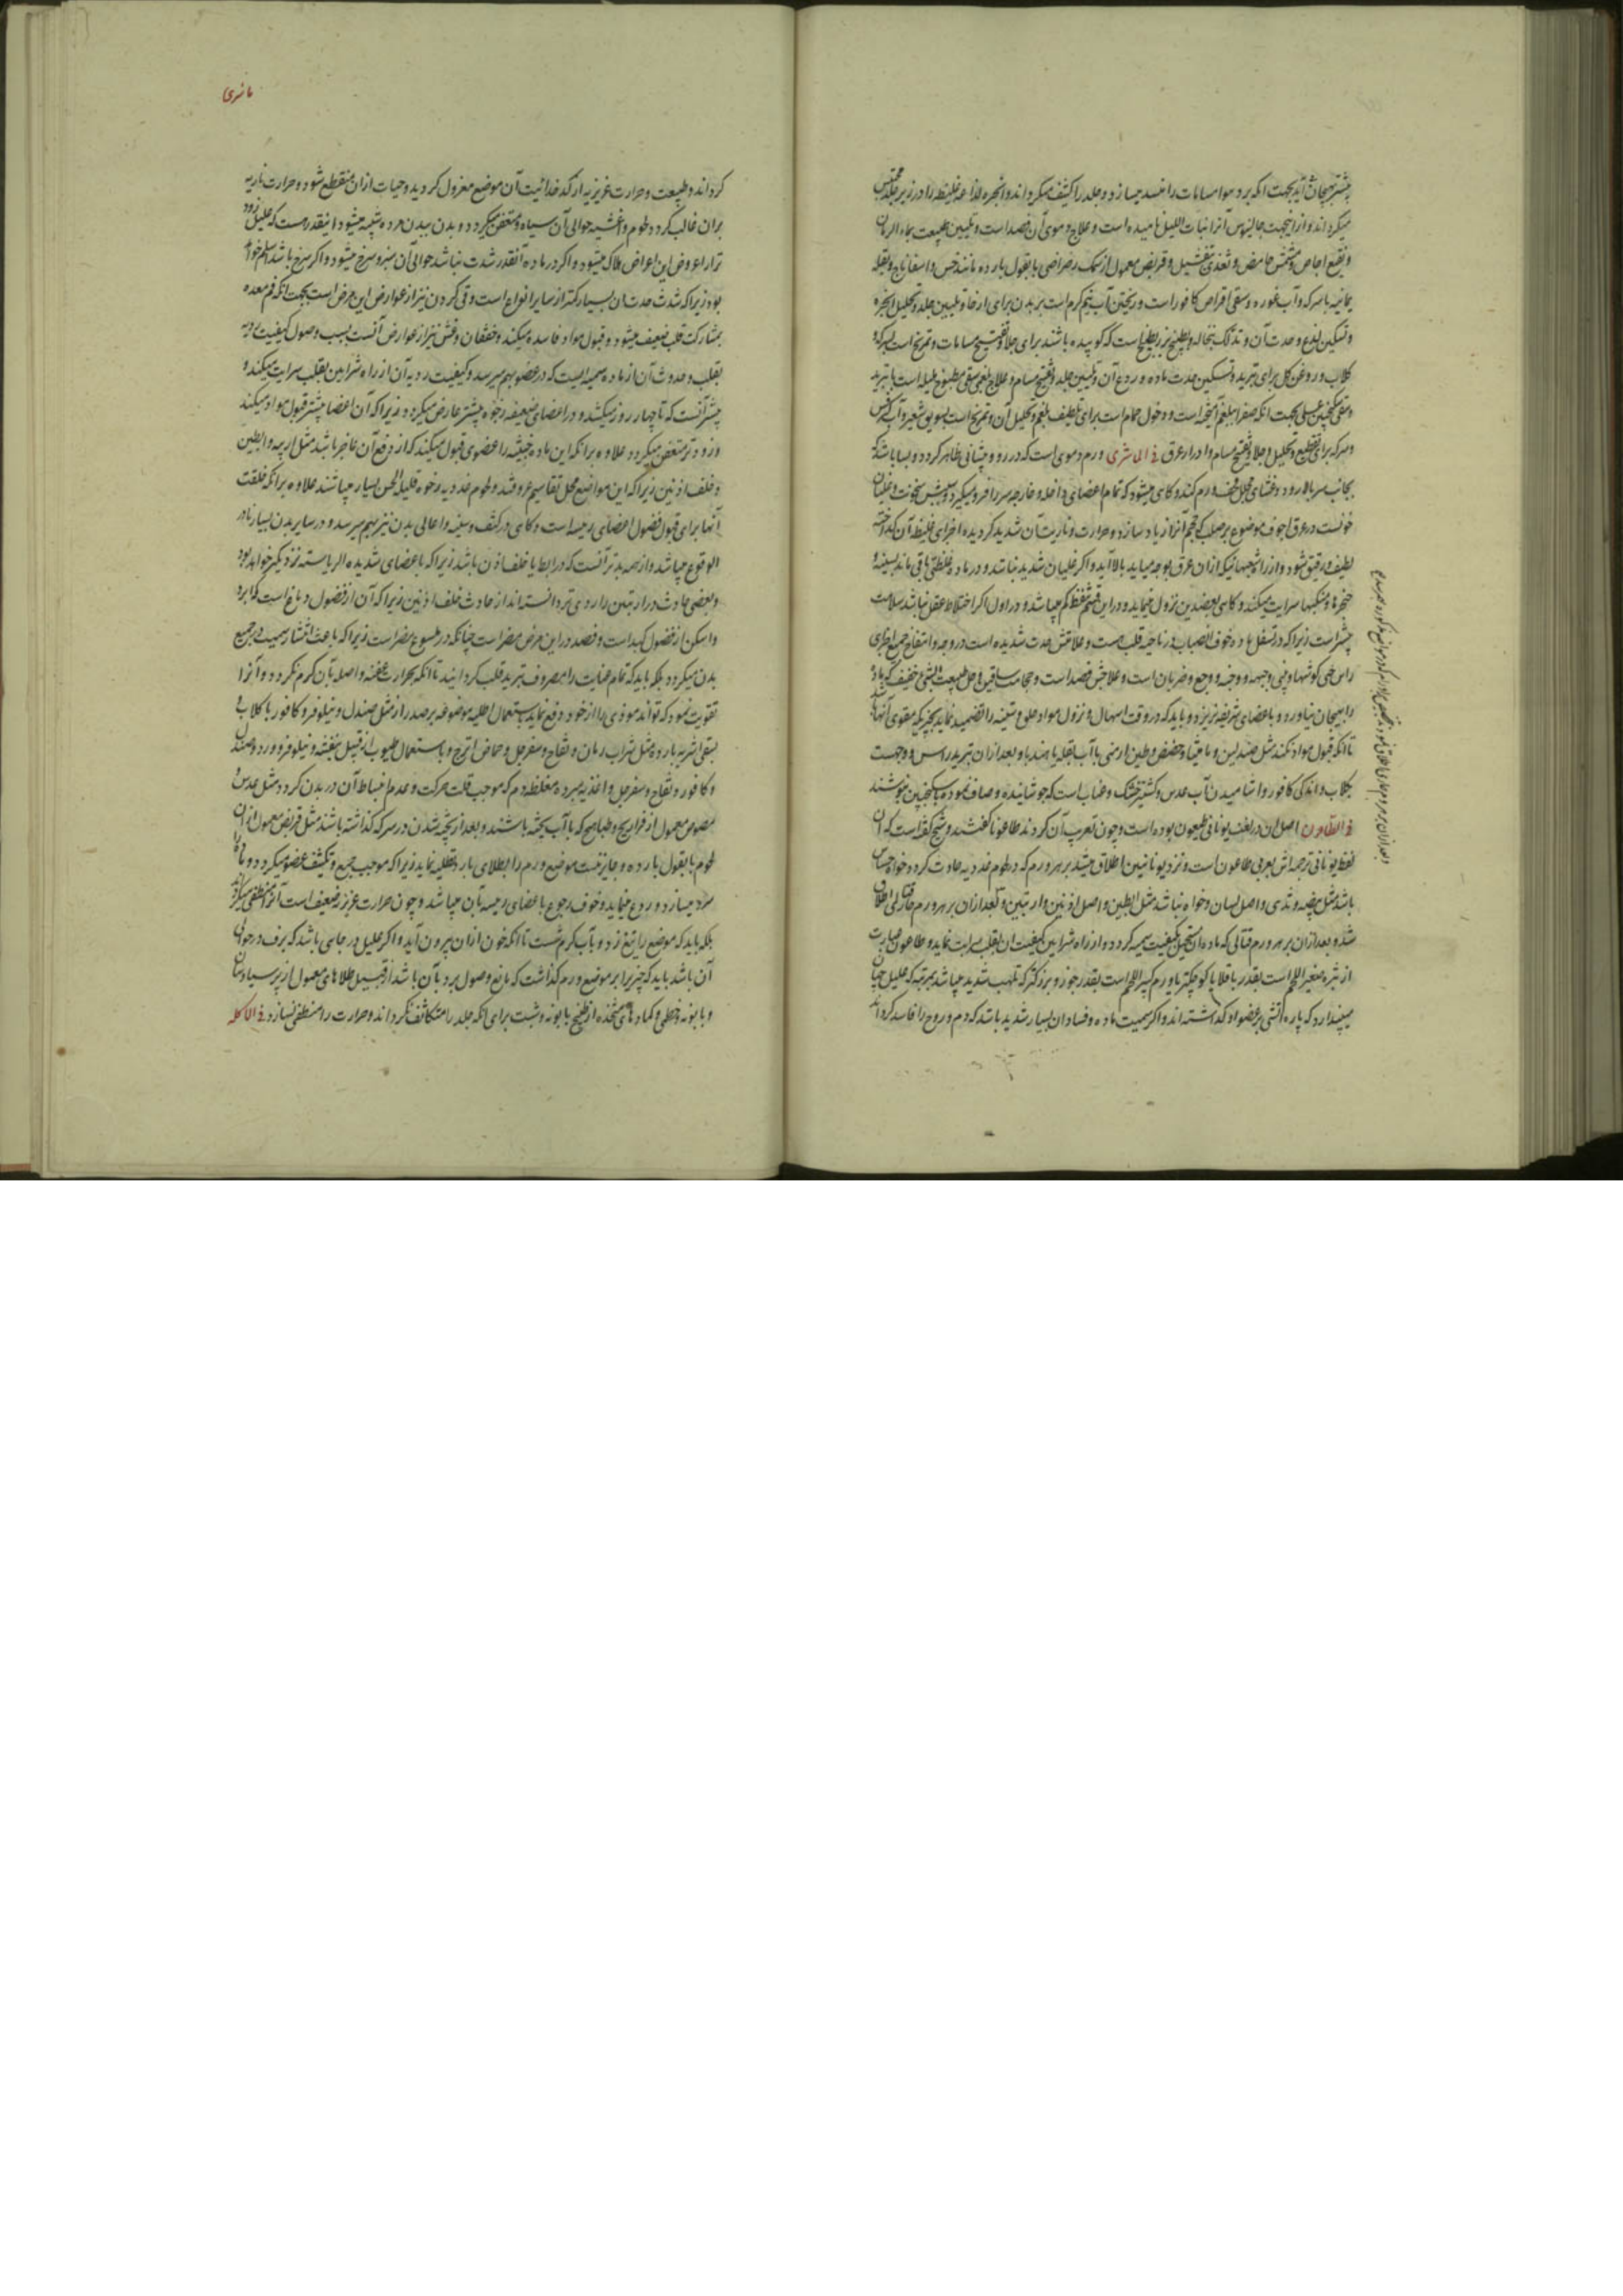 بیشتر بهیجان آید بجهت آنکه برد هوا مسامات را منسد میسازد و جلد را کثیف میگرداند و ابخره لذاعه غلیظه را در زیر جلد محتبس
میگرداند و از اینجهت جالینوس آنرا نبات اللیل نامیده است و علاج دموی آن فصد است و تلیین طبیعت بماء الرمان
و نقیع اجاص و مشمش حامض و تغذی و قریص معمول از سمک رضراضی یا بقول بارده مانند خس و اسفاناج و بقله
یمانیه با سرکه و آب غوره و سقی اقراص کافور است و ریختن آب نیم گرم است بر بدن برای ارخا و تلیین جلد و تحلیل ابخره
و تسکین لذع و حدت آن و تدلک بنخاله و بطیخ بزر بطیخ است که کوبیده باشند برای جلا و تفتیح مسامات و تمریخ است بسرکه و
گلاب و روغن گل برای تبرید و تسکین حدت ماده و ردع آن و تلیین جلد و تفتیح مسام و علاج بلغمی سقی مطبوخ هلیله است با تربد
و سقی سکنجبین عسلی بجهت آنکه صفرا ببلغم آمیخته است و دخول حمام است برای تلطیف بلغم و تحلیل آن و تمریخ است بسویق شعیر و آب کرفس
و سرکه برای تقطیع و تحلیل و جلا و تفتیح مسام و ادرار عرق فی الماشری ورم دموی است که در رو و پیشانی ظاهر گردد و بسا باشد که
بجانب سر بالا رود و غشای مجلل قحف ورم کند و گاهی میشود که تمام اعضای داخله و خارجه سر را فرو میگیرد و سببش سخونت و غلیان
خونست در عرق اجوف موضوع بر صلب که حجم آنرا زیاد سازد و حرارت و ناریت آن شدید گردیده اجزای غلیظه آن گداخته
لطیف و رقیق شود و از راه شعبهائیکه از آن عرق بوجه میاید بالا آید و اگر غلیان شدید نباشد و در ماده غلظتی باقی ماند بسینه و
حنجره و منکبها سرایت میکند و گاهی بعضدین نزول مینماید و در این قسم غلظ کم میباشد و در اول اگر اختلاط عقل نباشد سلامت
بیشتر است زیرا که در تسفل ماده خوف انصباب در ناحیه قلب هست و علامتش حمرت شدیده است در وجه و انتفاخ جمیع اجزای
راس حتی گوشها و بینی و جبهه و وجنه و وجع و ضربان است و علاجش فصد است و حجامت ساقین و حل طبیعت بشی خفیف که ماده
را بهیجان نیاورد و باعضای شریفه نریزد و باید که در وقت اسهال و نزول مواد حلق و سینه را تضمید نماید بچیزیکه مقوی آنها باشد
تا آنکه قبول مواد نکند مثل صندلین و مامیثا و حضض و طین ارمنی با آب بقله یا هندبا و بعد از آن تبرید راس و وجهست
بگلاب و اندکی کافور و آشامیدن آب عدس و کشنیز خشک و عناب است که جوشانیده و صاف نموده با سکنجبین بنوشند
فی الطاعون اصل آن در لغت یونانی طیعون بوده است و چون تعریب آن کردند طاعونا گفتند و شیخ گفته است که آن
لفظ یونانی ترجمه اش بعربی طاعون است و نزد یونانیین اطلاق میشد بر هر ورم که در لحوم غددیه حادث گردد خواه حساس
باشد مثل بیضه و ثدی و اصل لسان و خواه نباشد مثل ابطین و اصل اذنین و اربیتین و بعد از آن بر هر ورم حار قتال اطلاق
شد و بعد از آن بر هر ورم قتالی که ماده آن مستحیل بکیفیت سمیه گردد و از راه شرایین کیفیت آن بقلب سرایت نماید و طاعون عبارت
از بثره صغیر الحجم است بقدر باقلا یا کوچکتر یا ورم کبیر الحجم است بقدر جوز و بزرگتر که تلهب شدید میباشد بمرتبه که علیل چنان
میپندارد که پاره آتشی بر عضو او گذاشته اند و اگر سمیت ماده و فساد آن بسیار شدید باشد که دم و روح را فاسد گرداند
ماشری
گرداند و طبیعت و حرارت غریزیه از کدخدائیت آن موضع معزول گردید و حیات از آن منقطع شود و حرارت ناریه
بر آن غالب گردد لحوم و اغشیه حوالی آن سیاه و متعفن میگردد و بدن ببدن مرده شبیه میشود اینقدر هست که علیل زود
تر از عروض این اعراض هلاک میشود و اگر در ماده آنقدر شدت نباشد حوالی آن سبز و سرخ میشود و اگر سرخ باشد اسلم خواهد
بود زیرا که شدت حدت آن بسیار کمتر از سایر انواع است و قی کردن نیز از عوارض این مرض است بجهت آنکه فم معده
بمشارکت قلب ضعیف میشود و قبول مواد فاسده میکند و خفقان و غشی نیز از عوارض آنست بسبب وصول کیفیت ردیه
بقلب و حدوث آن از ماده سمیه ایست که در عضو بهم میرسد و کیفیت ردیه آن از راه شرایین بقلب سرایت میکند و
بیشتر آنست که تا چهار روز میکشد و در اعضای ضعیفه رخوه بیشتر عارض میگردد زیرا که آن اعضا بیشتر قبول مواد میکند
و زودتر متعفن میگردد علاوه بر آنکه این ماده خبیثه را عضوی قبول میکند که از دفع آن عاجز باشد مثل اربیه و ابطین
و خلف اذنین زیرا که این مواضع محل تقاسیم عروقند و لحوم غددیه رخوه قلیلة الحس بسیار میباشند علاوه بر آنکه خلقت
آنها برای قبول فضول اعضای رئیسه است و گاهی در کتف و سینه و اعالی بدن نیز بهم میرسد و در سایر بدن بسیار نادر
الوقوع میباشد و از همه بدتر آنست که در ابط یا خلف اذن باشد زیرا که باعضای شدیده الریاسته نزدیکتر خواهد بود
و بعضی حادث در اربیتین را ردی تر دانسته اند از حادث خلف اذنین زیرا که آن از فضول دماغ است که ابرد
و اسکن از فضول کبد است و فصد در این مرض مضر است چنانکه در ملسوع مضر است زیرا که باعث انتشار سمیت در جمیع
بدن میگردد بلکه باید که تمام عنایت را مصروف تبرید قلب گردانید تا آنکه بحرارت عفنه واصله بآن گرم نگردد و آنرا
تقویت نمود که تواند موذی را از خود دفع نماید باستعمال اطلیه موضوعه بر صدر از مثل صندل و نیلوفر و کافور با گلاب و
بسقی اشربه بارده مثل شراب رمان و تفاح و سفرجل و حماض اترج و باستعمال طیوب از قبیل بنفشه و نیلوفر و ورد و صندل
و کافور و تفاح و سفرجل و اغذیه مبرده مغلظه دم که موجب قلت حرکت و عدم انبساط آن در بدن گردد مثل عدس و
مصوص معمول از فراریج و طیاهیج که با آب پخته باشند و بعد از پخته شدن در سرکه گذاشته باشند مثل قریص معمول از آن
لحوم با بقول بارده و جایز نیست موضع ورم را بطلای بارد تطلیه نماید زیرا که موجب جمع و تکثیف عضو میگردد و ماده را
سرد میسازد و ردع مینماید و خوف رجوع باعضای رئیسه بآن میباشد و چون حرارت غریزه ضعیف است آنرا منطفی میگرداند
بلکه باید که موضع را تیغ زد و بآب گرم شست تا آنکه خون از آن بیرون آید و اگر علیل در جای باشد که برف در حوالی
آن باشد باید که چیزی برابر موضع ورم گذاشت که مانع وصول برد بآن باشد از قبیل طلاهای معمول از پر سیاوشان
و بابونه و خطمی و کمادهای متخذه از طبیخ بابونه و شبت برای آنکه جلد را متکاثف نگرداند و حرارت را منطفی نسازد فی الاکله